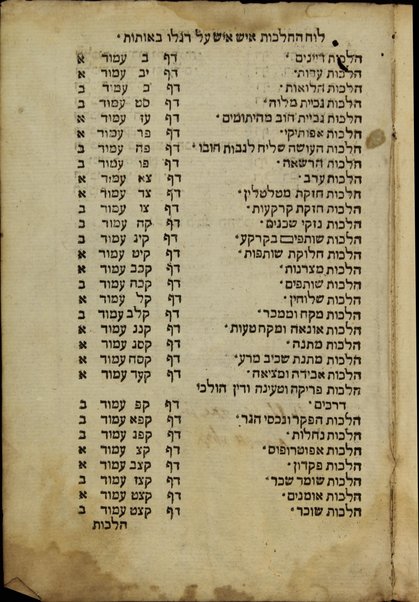 לוח החלכות איש איש על דגלו באותות *
הלכות דיינים * דף ב עמוד א
הלכות עדות * דף יב עמוד א
הלכות הלואות * דף כ עמוד ב
הלכות גביית מלוה * דף סט עמוד ב
הלכות גביית חוב מהיתומים * דף עז עמוד א
הלכות אפותיקי * דף פר עמוד א
הלכות העושה שליח לגבות חובו * דף פה עמוד ב
הלכות הרשאה * דף פו עמוד ב
הלכות ערב * דף צא עמוד א
הלכות חזקת מטלטלין * דף צד עמוד א
הלכות חזקת קרקעות * דף צו עמוד ב
הלכות נזקי שכנים * דף קה עמוד ב
הלכות שותפים בקרקע * דף קינ עמוד ב
הלכות חלוקת שותפות * דף קיט עמוד א
הלכות מצרנות * דף קכב עמוד א
הלכות שותפים * דף קכה עמוד ב
הלכות שלוחין * דף קל עמוד א
הלכות מקח וממכר * דף קלב עמוד ב
הלכות אונאה ומקח טעות * דף קנג עמוד א
הלכות מתנה * דף קסג עמוד א
הלכות מתנת שכיב מרע * דף קסח עמוד א
הלכות אבידה ומציאה * דף קעד עמוד א
הלכות פריקה וטעינה ודין הולכי
דרכים * דף קפ עמוד ב
הלכות הפקר ונכסי הגר * דף קפא עמוד ב
הלכות נחלות * דף קפג עמוד ב
הלכות אפוטרופוס * דף קצ עמוד א
הלכות פקדון * דף קצב עמוד א
הלכות שומר שכר * דף קצז עמוד ב
הלכות אומנים * דף קצט עמוד א
הלכות שוכר * דף קצט עמוד ב
הלכות